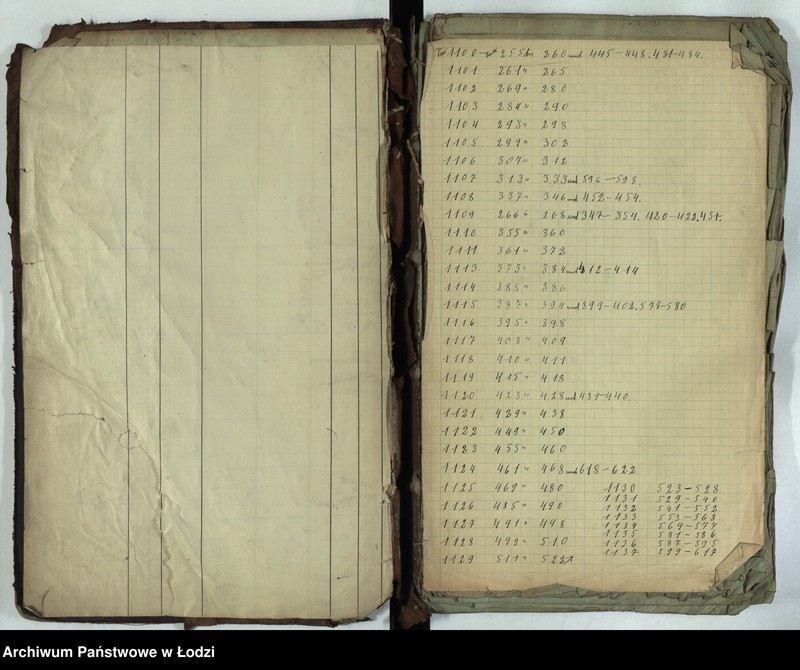 1100 - 255 bis 260 und 445-448. 481-484.
1101 261 " 265
1102 269 " 280
1103 284 " 290
1104 293 " 298
1105 299 " 302
1106 307 " 312
1107 313 " 333 und 596-598.
1108 337 " 346 und 452-454.
1109 266 " 268 und 347-354. 420-422. 451.
1110 355 " 360
1111 361 " 372
1113 373 " 384 und 412-414
1114 385 " 386
1115 387 " 394 und 399-402. 578-580
1116 395 " 398
1117 403 " 409
1118 410 " 411
1119 415 " 418
1120 423 " 428 und 439-440.
1121 429 " 438
1122 449 " 450
1123 455 " 460
1124 461 " 468 und 618-622
1125 469 " 480
1126 485 " 490
1127 491 " 498
1128 499 " 510
1129 511 " 522
1130 523-528
1131 529-540
1132 541-552
1133 553-568
1134 569-577
1135 581-586
1136 587-595
1137 599-617
Archiwum Państwowe w Łodzi